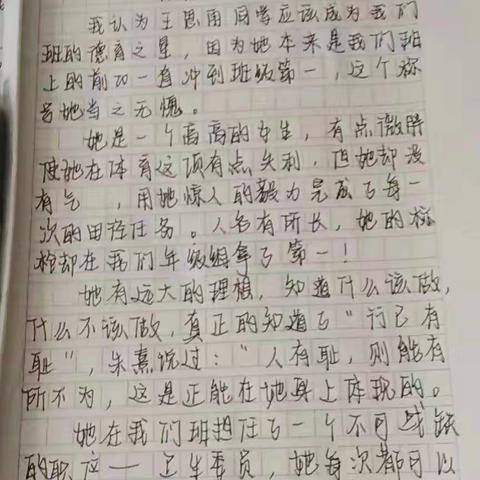 我认为王思雨同学应该成为我们
班的德育之星，因为她本来是我们班
上的前20一直冲到班级第一，这个称
号她当之无愧。
她是一个高高的女生，有点微胖
使她在体育这项有点失利，但她却没
有气，用她惊人的毅力完成了每一
次的田径任务。人各有所长，她的标
枪却在我们年级组拿了第一！
她有远大的理想，知道什么该做，
什么不该做，真正的知道了"行己有
耻"，朱熹说过："人有耻，则能有
所不为，这是正能在她身上体现的。
她在我们班担任了一个不可或缺
的职位——卫生委员，她每次都可以